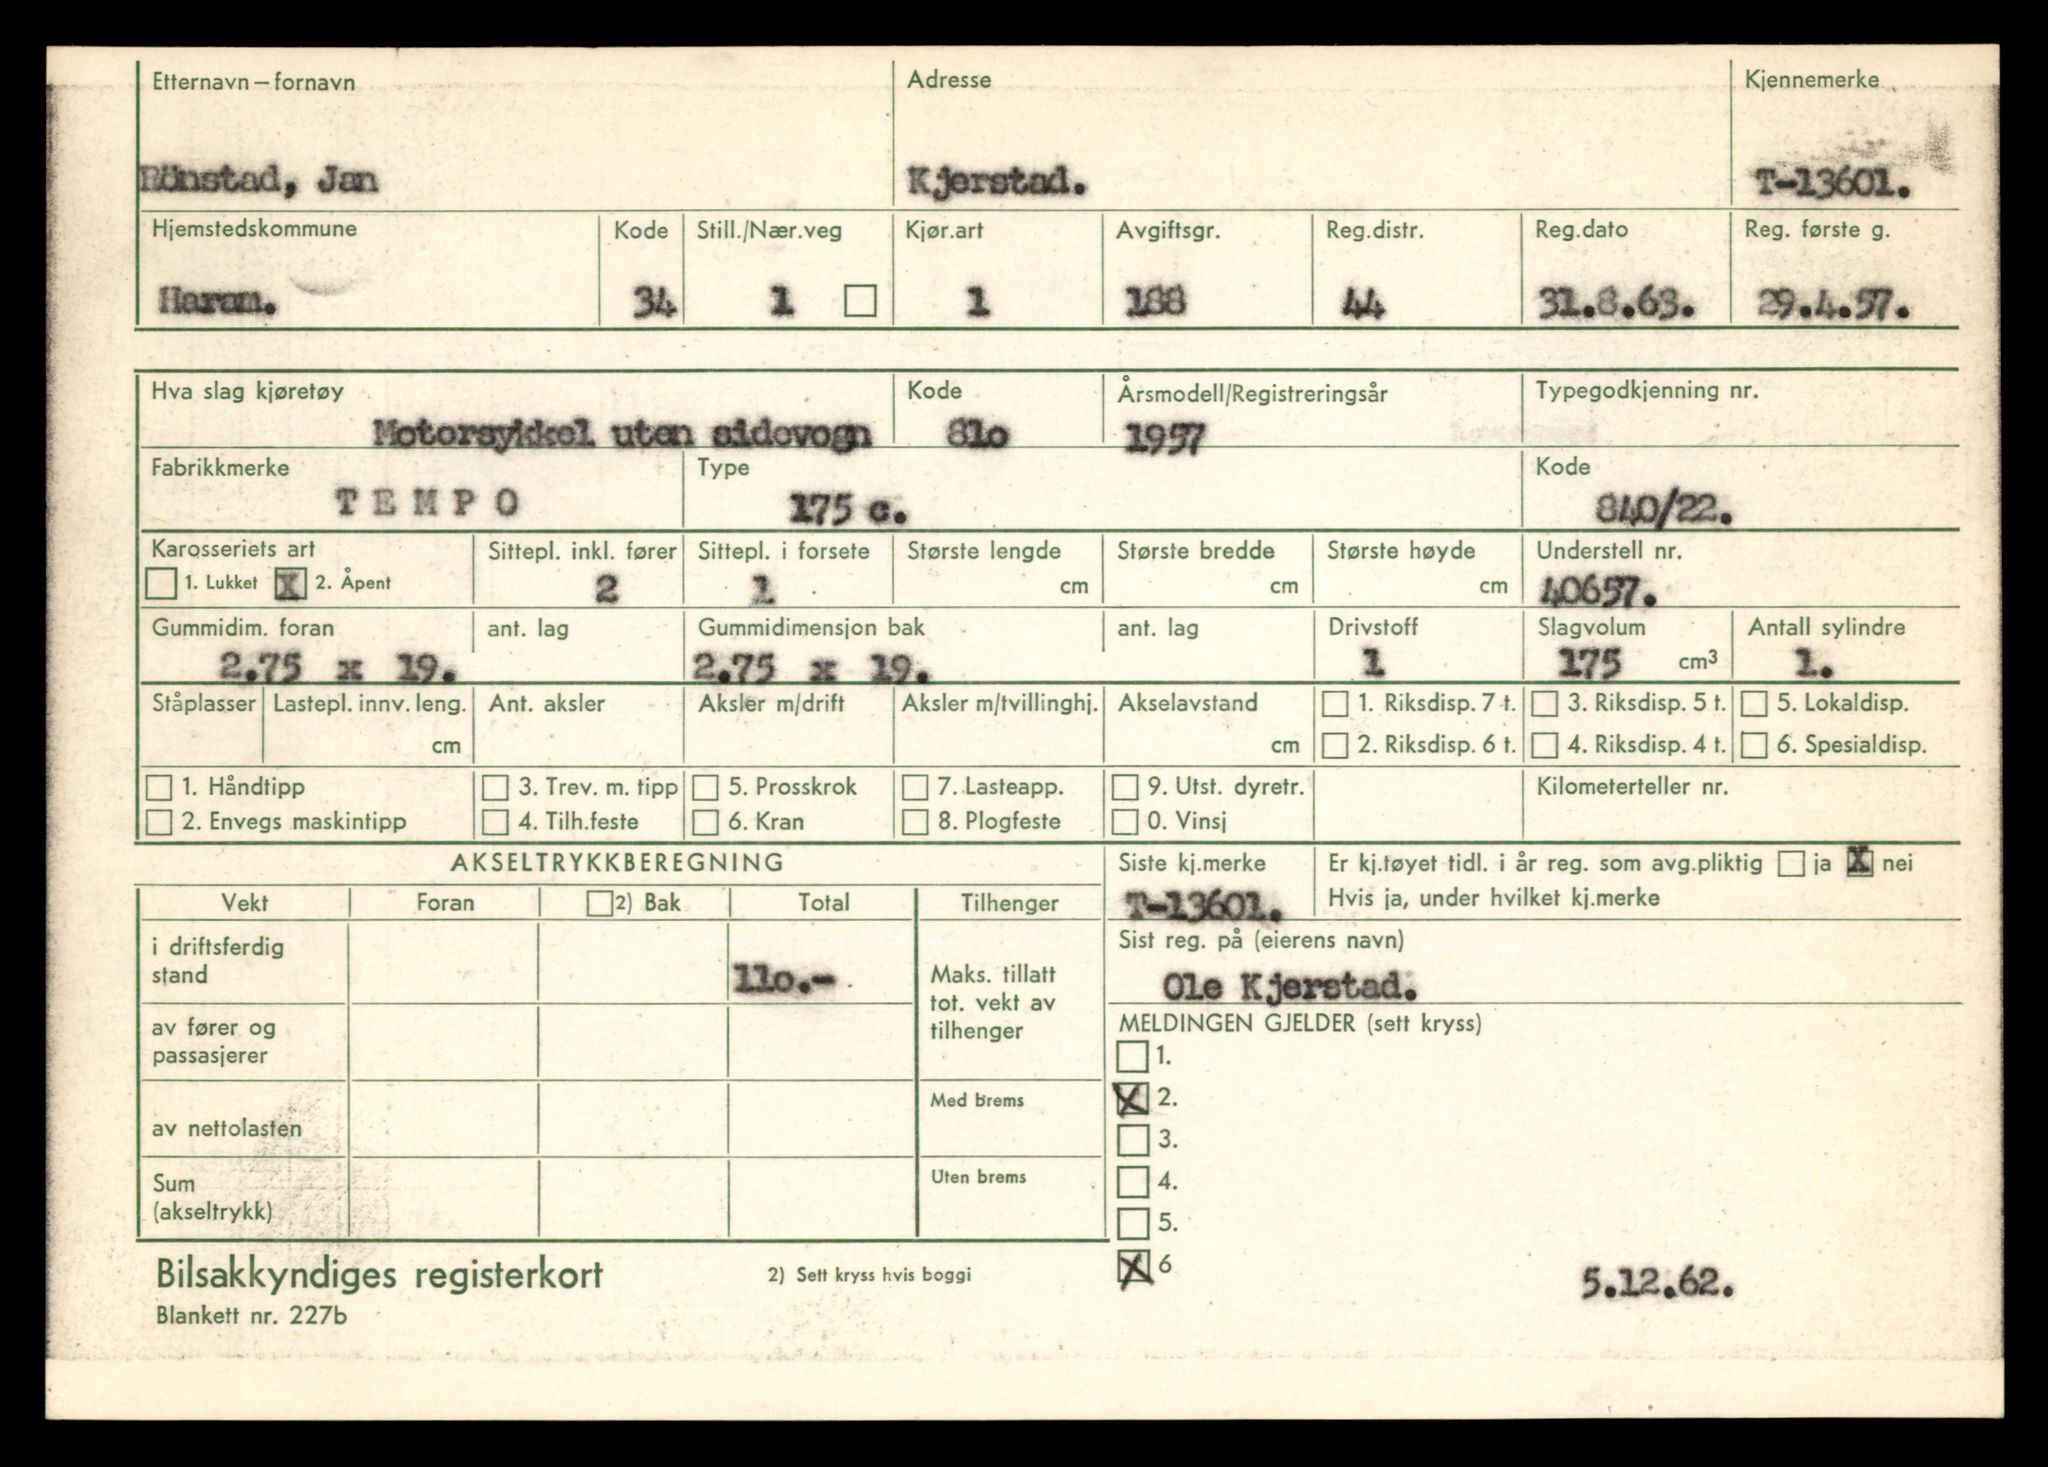 Etternavn – fornavn Adresse Kjennemerke
Rönstad, Jan Kjerstad. T-13601.
Hjemstedskommune Kode Still./Nær.veg Kjør.art Avgiftsgr. Reg.distr. Reg.dato Reg. første g.
Haram. 34 1 1 188 44 31.8.63. 29.4.57.
Hva slag kjøretøy Kode Årsmodell/Registreringsår Typegodkjenning nr.
Motorsykkel uten sidevogn 81o 1957
Fabrikkmerke Type Kode
TEMPO 175 c. 840/22.
Karosseriets art Sittepl. inkl. fører Sittepl. i forsete Største lengde Største bredde Største høyde Understell nr.
1. Lukket X 2. Åpent 2 1 cm cm cm 40657.
Gummidim. foran ant. lag Gummidimensjon bak ant. lag Drivstoff Slagvolum Antall sylindre
2.75 x 19. 2.75 x 19. 1 175 cm³ 1.
Ståplasser Lastepl. innv. leng. Ant. aksler Aksler m/drift Aksler m/tvillinghj. Akselavstand 1. Riksdisp. 7 t. 3. Riksdisp. 5 t. 5. Lokaldisp.
cm cm 2. Riksdisp. 6 t. 4. Riksdisp. 4 t. 6. Spesialdisp.
1. Håndtipp 3. Trev. m. tipp 5. Prosskrok 7. Lasteapp. 9. Utst. dyretr. Kilometerteller nr.
2. Envegs maskintipp 4. Tilh.feste 6. Kran 8. Plogfeste 0. Vinsj
AKSELTRYKKBEREGNING Siste kj.merke Er kj.tøyet tidl. i år reg. som avg.pliktig ja X nei
Vekt Foran 2) Bak Total Tilhenger T-13601. Hvis ja, under hvilket kj.merke
i driftsferdig Sist reg. på (eierens navn)
stand 11o.- Maks. tillatt Ole Kjerstad.
tot. vekt av
av fører og tilhenger MELDINGEN GJELDER (sett kryss)
passasjerer 1.
Med brems X 2.
av nettolasten 3.
Sum Uten brems 4.
(akseltrykk) 5.
Bilsakkyndiges registerkort 2) Sett kryss hvis boggi X 6 5.12.62.
Blankett nr. 227b